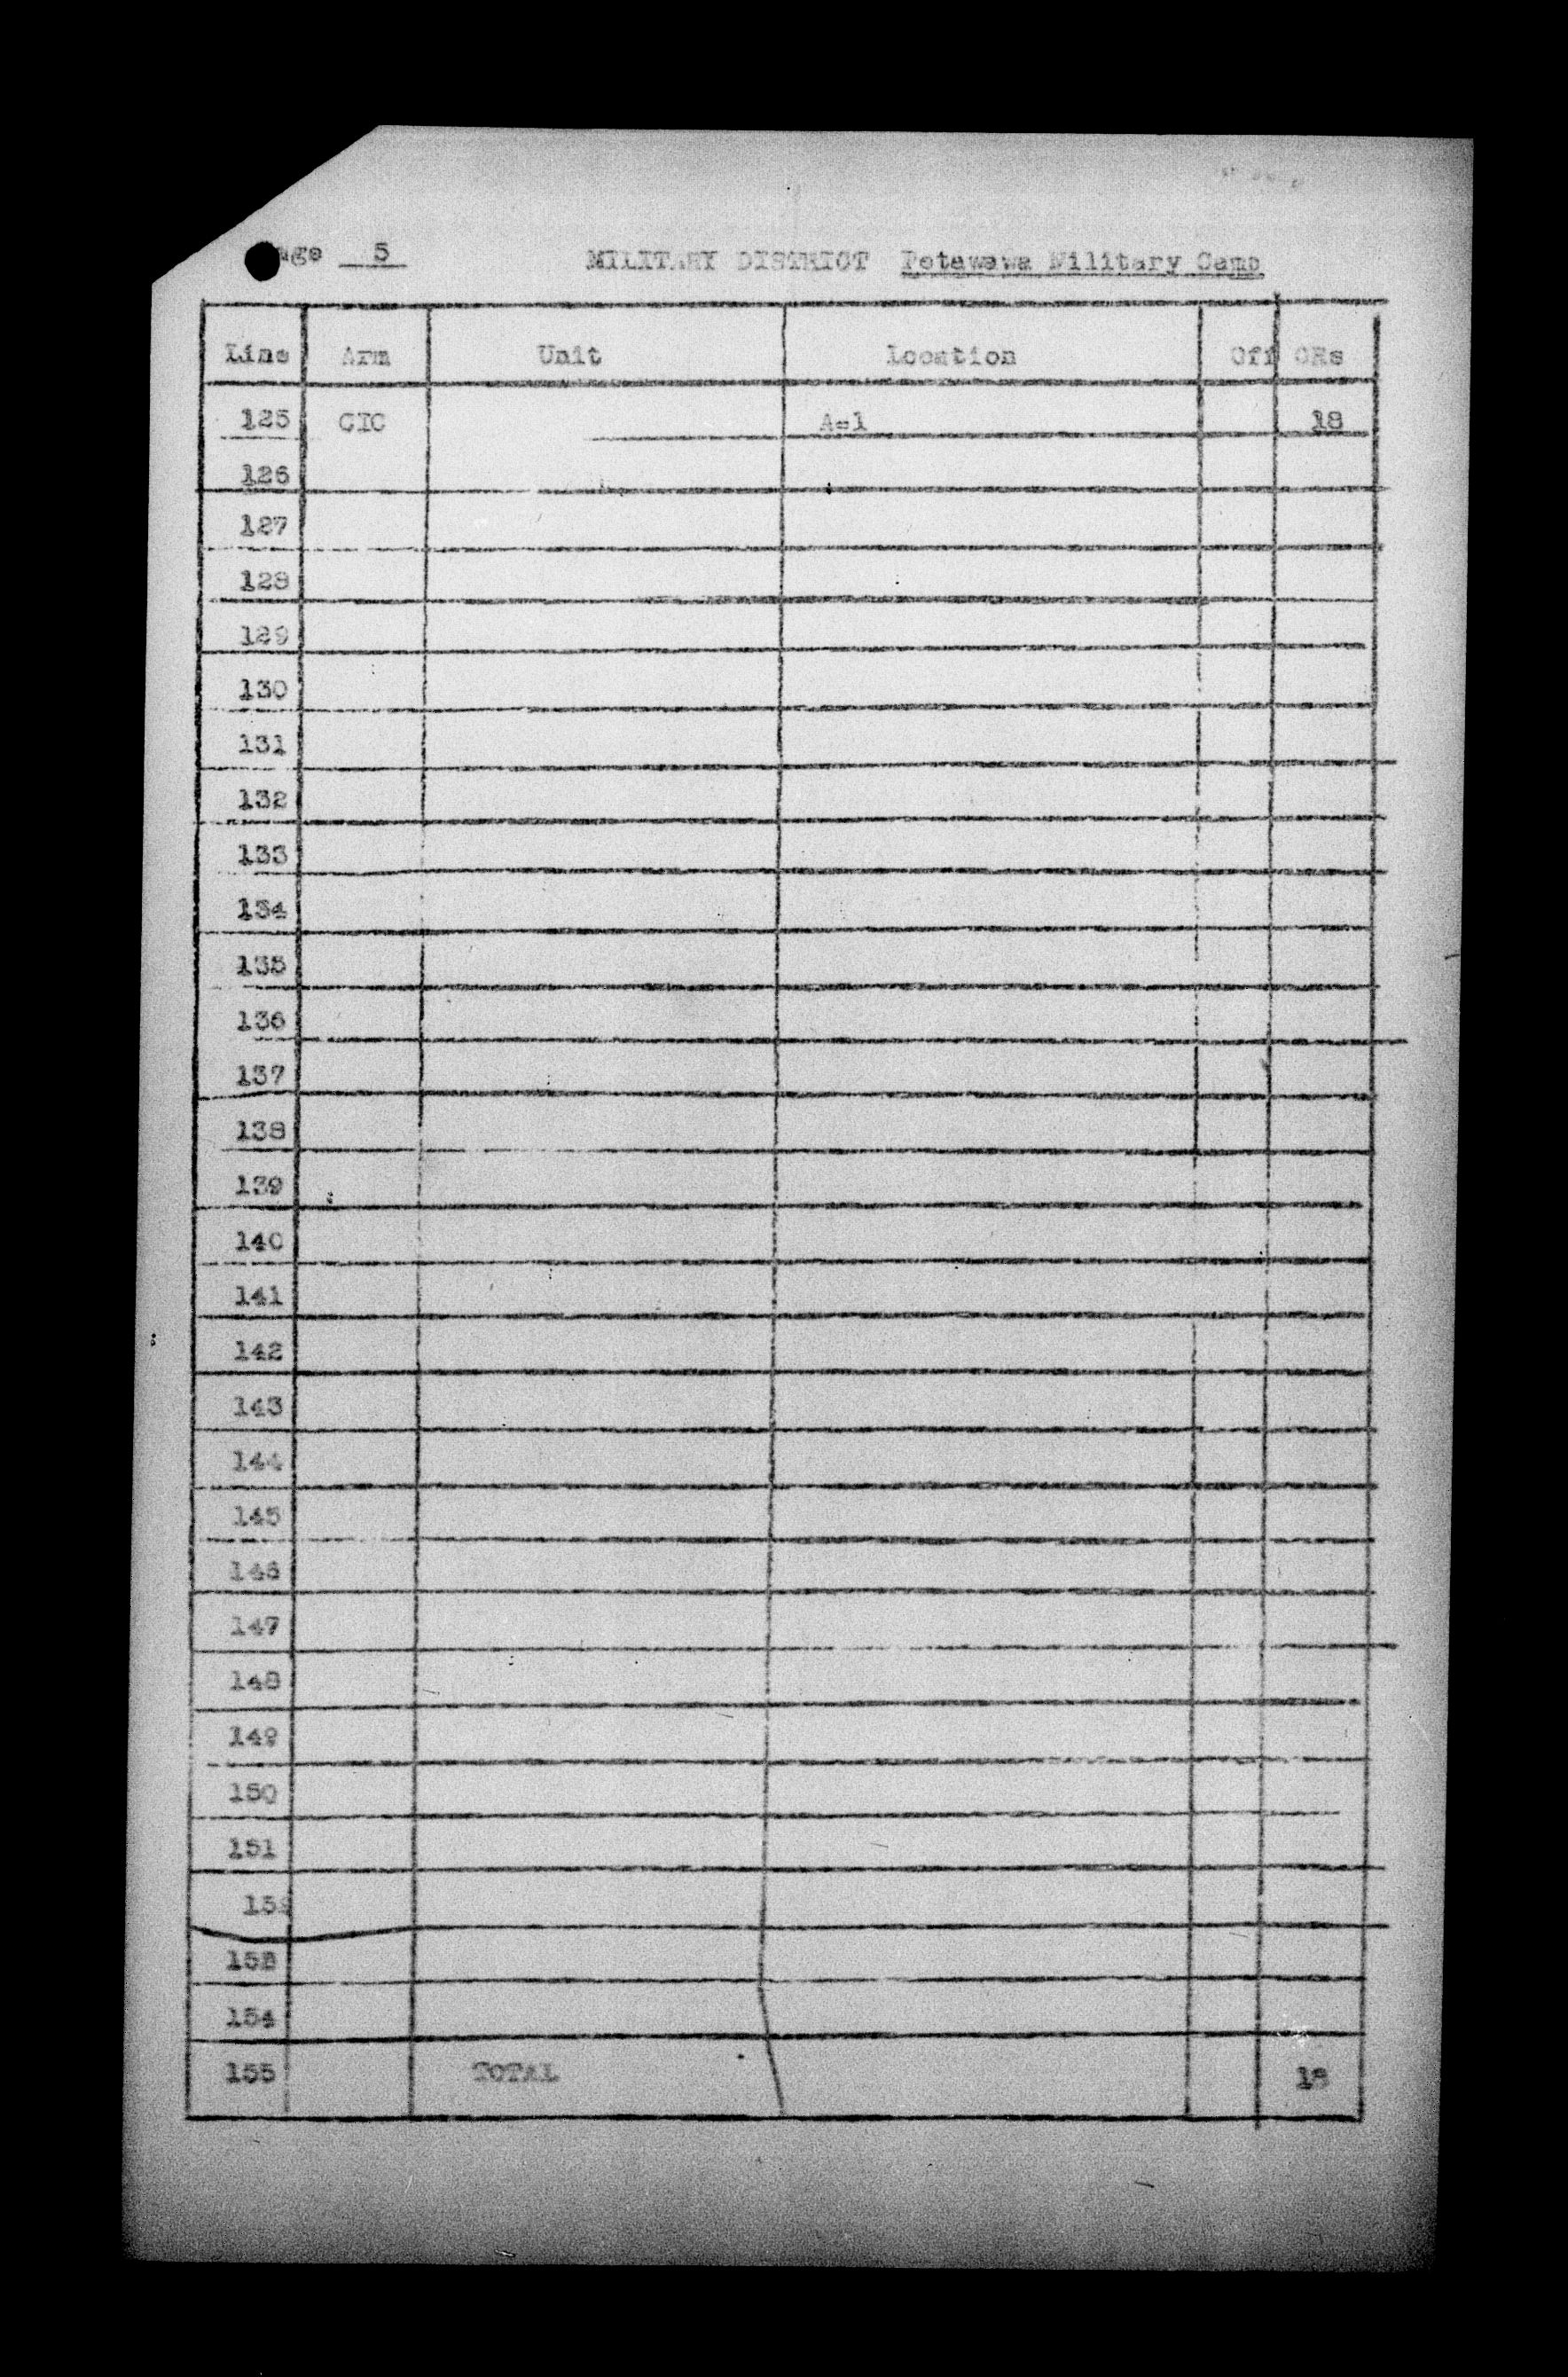 Page 5 MILITARY DISTRICT Petawawa Military Camp
Line Arm Unit Location Off ORs
125 CIC A-1 18
126
127
128
129
130
131
132
133
134
135
136
137
138
139
140
141
142
143
144
145
146
147
148
149
150
151
152
153
154
155 TOTAL 18